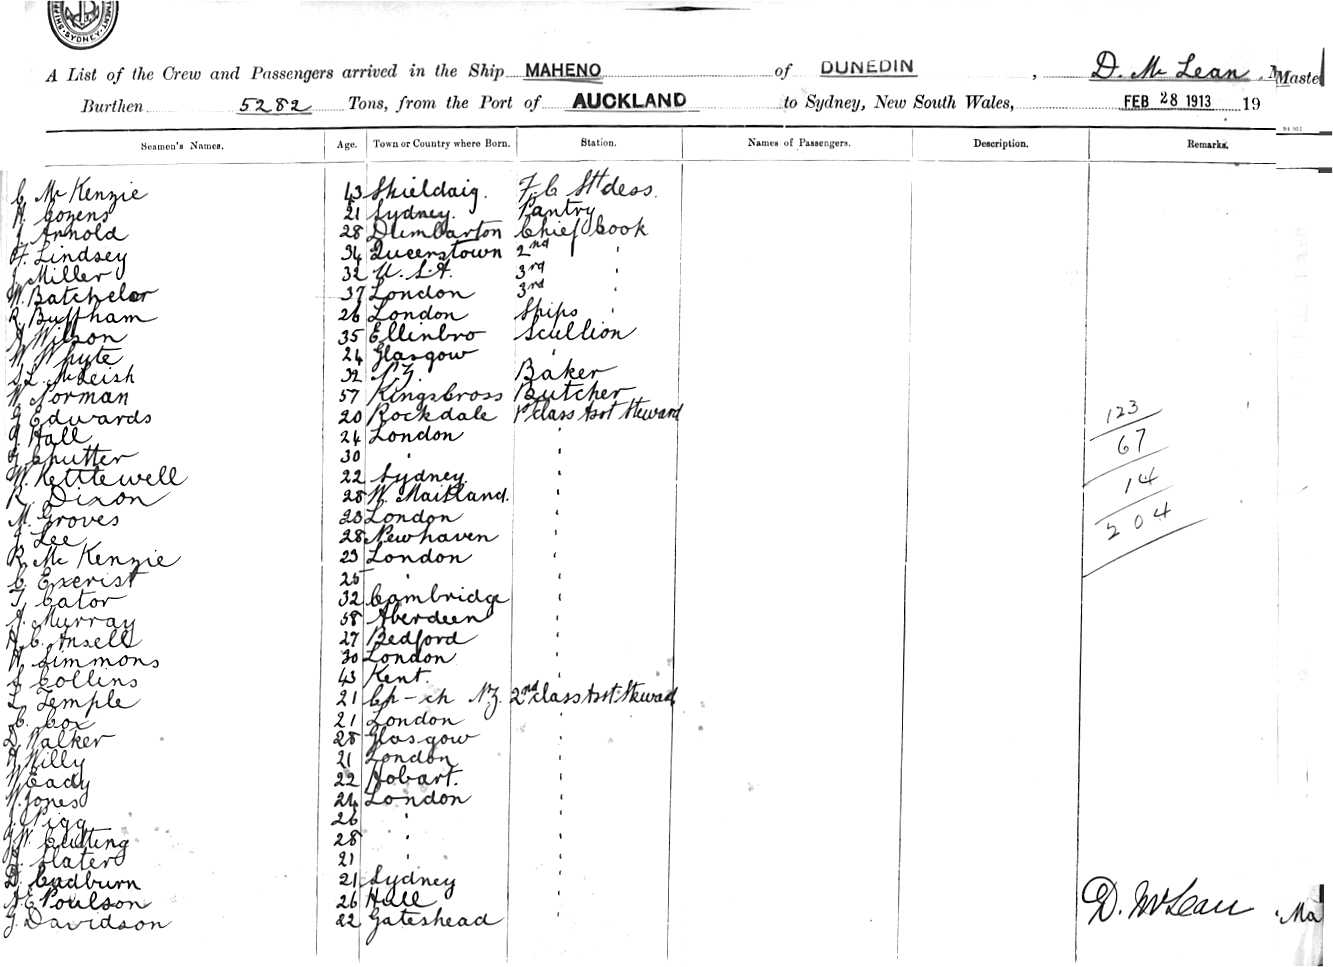 A List of the Crew and Passengers arrived in the Ship MAHENO of DUNEDIN, D. Mc Lean, Master
Burthen 5282 Tons, from the Port of AUCKLAND to Sydney, New South Wales, FEB 28 1913 19
Seamen's Names. Age. Town or Country where Born. Station. Names of Passengers. Description. Remarks.
C Mc Kenzie 43 Shieldaig. F. C Stdess.
H. Cozens 21 Sydney. Pantry
J Arnold 28 Dumbarton Chief Cook
F. Lindsey 34 Queenstown 2nd '
J Miller 32 U.S.A. 3rd '
W. Batchelor 37 London 3rd '
R Buffham 26 London Ships '
J Wilson 35 Ellinbro Scullion
W. Whyte 24 Glasgow '
S.L. McLeish 32 N.Z. Baker
W Norman 57 Kings Cross Butcher
G Edwards 20 Rockdale 1st Class Asst Steward
J. Hall 24 London '
Chutter 30 ' '
W. Kettlewell 22 Sydney. '
R. Dixon 28 W. Maitland. '
M. Groves 23 London '
J Lee 28 Newhaven '
R. Mc Kenzie 23 London '
C. Exerist 25 ' '
T. Cator 32 Cambridge '
J. Murray 58 Aberdeen '
H.C. Ansell 27 Bedford '
H. Simmons 30 London '
S Collins 43 Kent. '
L. Temple 21 Ch-ch N.Z. 2nd class Asst Steward
C. Cox 21 London '
D. Walker 28 Glasgow '
Willy 21 London '
W Eady 22 Hobart. '
W. Jones 24 London '
J. Pigg 26 ' '
J.W. Cutting 28 ' '
Slater 21 ' '
D. Cadburn 21 Sydney '
A.E. Poulson 26 Hull '
J. Davidson 22 Gateshead '
123
67
14
204
D. McLean Ma